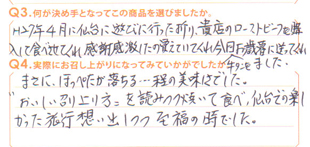 Q3.何が決め手となってこの商品を選びましたか。
H27年4月に仙台に遊びに行った折り、貴店のローストビーフを購
入して食べさせてくれ感動感激したの覚えていてくれ今日お歳暮に送ってくれ
Q4.実際にお召し上がりになってみていかがでしたか
キタッました。
まさに、ほっぺたが落ちる…程の美味さでした。
"おいしい召り上り方"を読みつつ頂いて食べ、仙台での楽し
かった旅行想い出しつつ至福の時でした。